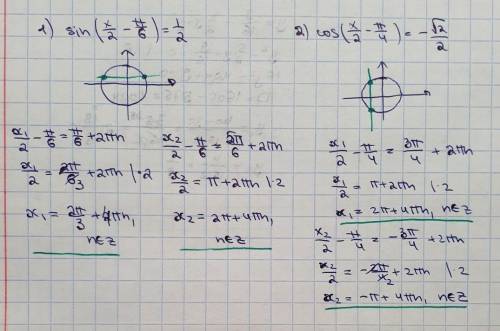 1) sin(x/2 - π/6) = 1/2
x₁/2 - π/6 = π/6 + 2πn
x₁/2 = 2π/6₃ + 2πn |·2
x₁ = 2π/3 + 4πn,
n∈Z
x₂/2 - π/6 = 5π/6 + 2πn
x₂/2 = π + 2πn |·2
x₂ = 2π + 4πn,
n∈Z
2) cos(x/2 - π/4) = -√2/2
x₁/2 - π/4 = 3π/4 + 2πn
x₁/2 = π + 2πn |·2
x₁ = 2π + 4πn, n∈Z
x₂/2 - π/4 = -3π/4 + 2πn
x₂/2 = -2π/4₂ + 2πn |·2
x₂ = -π + 4πn, n∈Z